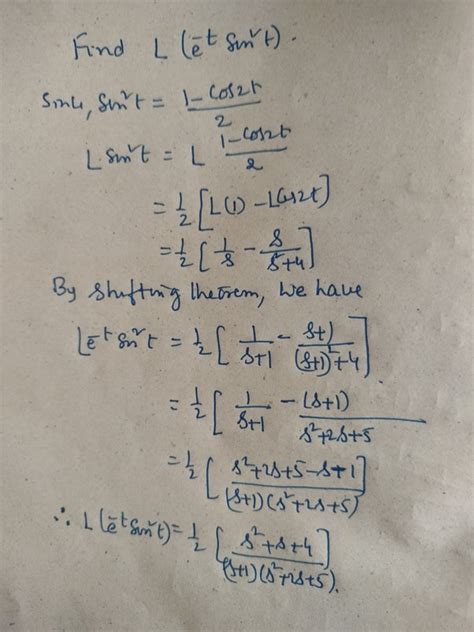 Find L (e^-t sin²t).
Since, sin²t = 1-cos2t / 2
L sin²t = L 1-cos2t / 2
= 1/2 [L(1) - Lcos2t]
= 1/2 [1/s - s/s²+4]
By shifting theorem, we have
Le^-t sin²t = 1/2 [1/s+1 - s+1/(s+1)²+4]
= 1/2 [1/s+1 - (s+1)/s²+2s+5
= 1/2 [s²+2s+5-s+1/(s+1)(s²+2s+5)]
∴ L(e^-t sin²t) = 1/2 [s²+s+4/(s+1)(s²+2s+5).]